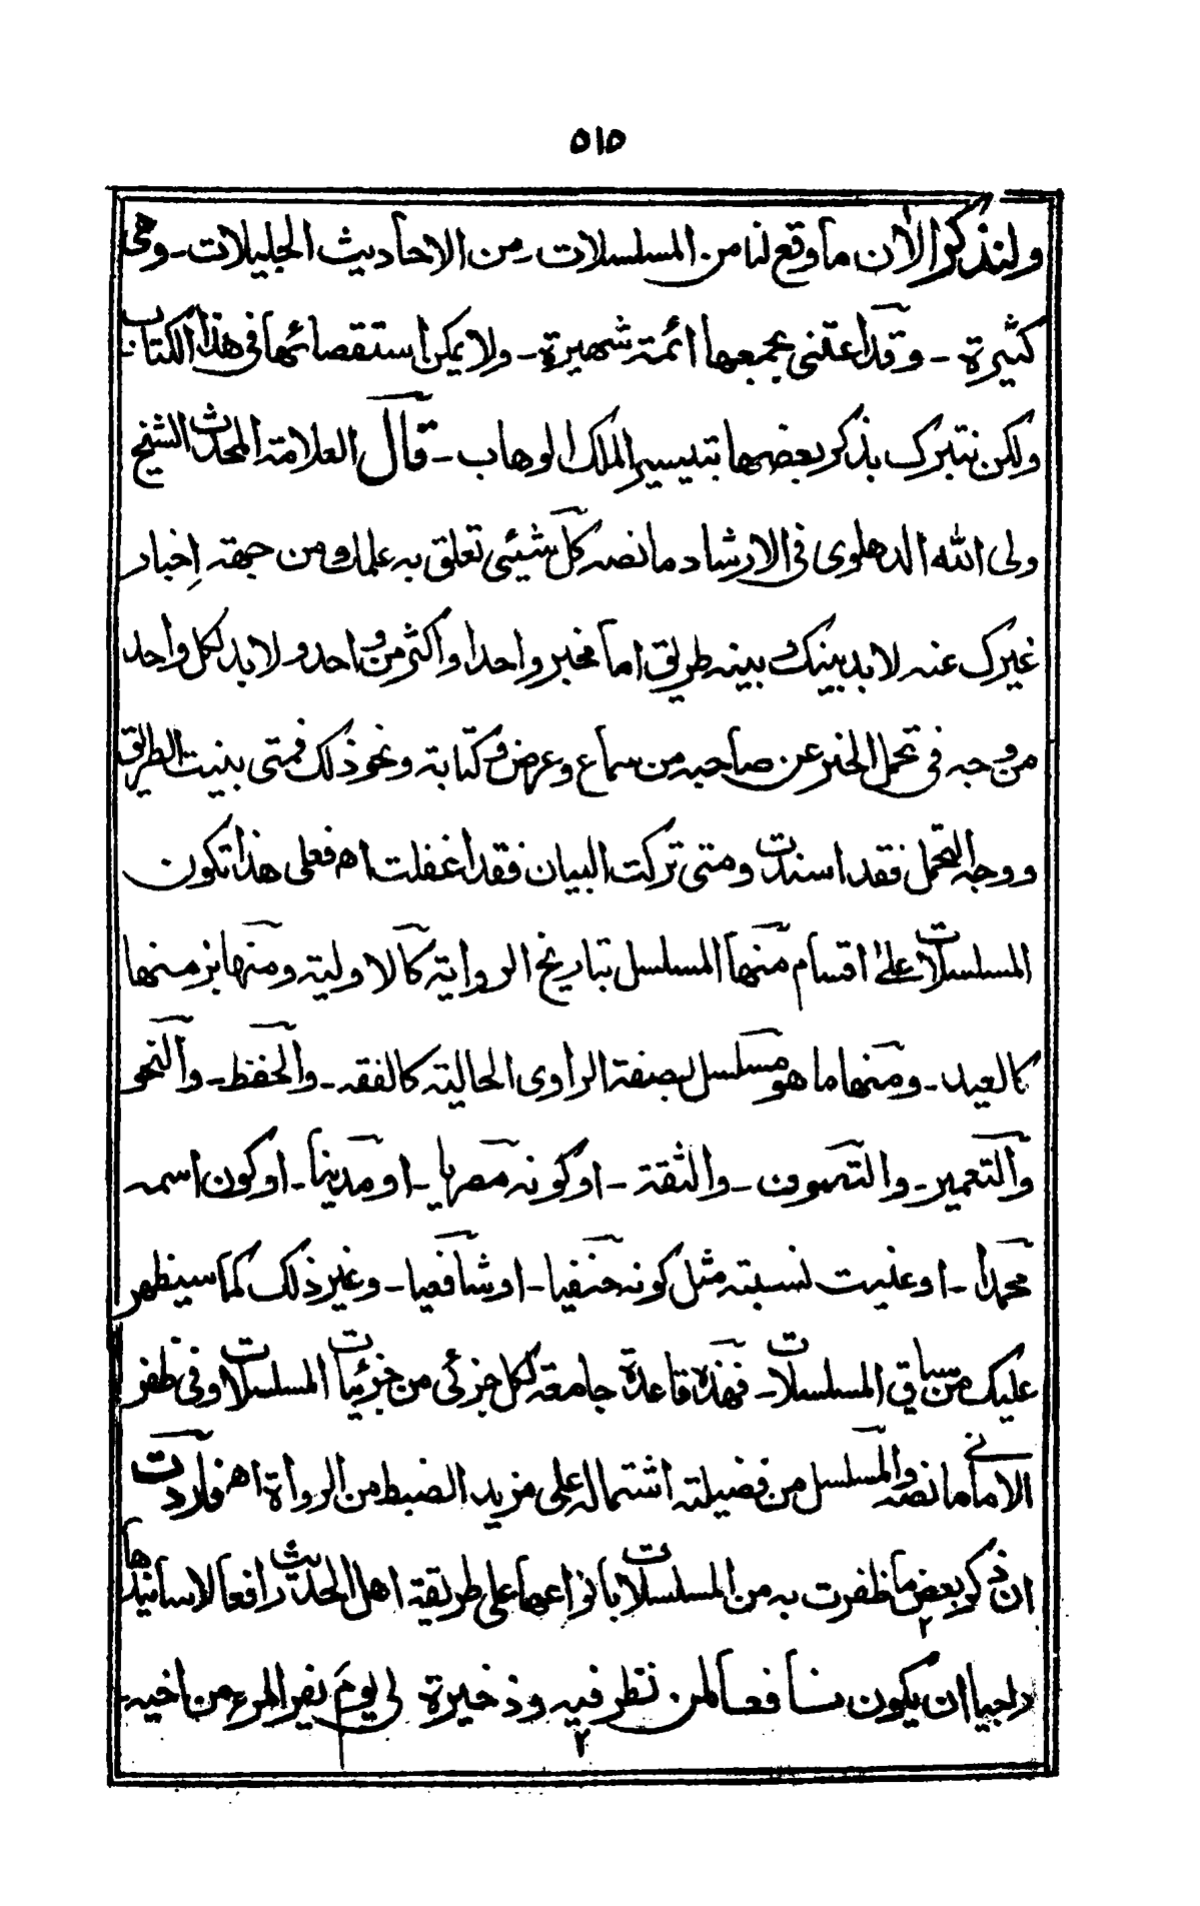 ٥١٥
ولنذكر الأن ما وقع لنا من المسلسلات - من الاحاديث الجليلات - وهى
كثيرة - وقد اعتنى بجمعها ائمته شهيرة - ولا يمكن استقصائها فى هذا الكتاب
ولكن نتبرك بذكر بعضها بتيسير الملك الوهاب - قال العلامة المحدث الشيخ
ولى الله الدهلوى فى الارشاد ما نصه كل شيئى تعلق به علمك ومن جهته إخبار
غيرك عنه لا بد بينك وبينه طريق اما مخبر واحد او اكثر من واحد ولا بد لكل واحد
من وجه فى تحمل الخبر عن صاحبه من سماع وعرض وكتابة ونحو ذلك فمتى بينت الطريق
ووجه التحمل فقد اسندت ومتى تركت البيان فقد اغفلت اه فعلى هذا تكون
المسلسلات على اقسام منها المسلسل بتاريخ الرواية كالاولية ومنها بزمنها
كالعيد - ومنها ما هو مسلسل بصفة الراوى الحالية كالفقه - والحفظ - والنحو
والتعمير - والتصوف - والثقة - او كونه مصريا - او مدينا - او كون اسمه
محمدا - او غيرت نسبته مثل كونه حنفيا - او شافعيا - وغير ذلك كما سيظهر
عليك من سياق المسلسلات - فهذه قاعدة جامعة لكل جزئى من جزئيات المسلسلات وفى ظفر
الامانى ما نصه والمسلسل من فضيلته اشتماله على مزيد الضبط من الرواة اه فاردت
ان اذكر بعض ما ظفرت به من المسلسلات بانواعها على طريقة اهل الحديث رافعا لاسانيدها
راجيا ان يكون نافعا لمن نظر فيه وذخيرة لى يوم يفر المرء من اخيه